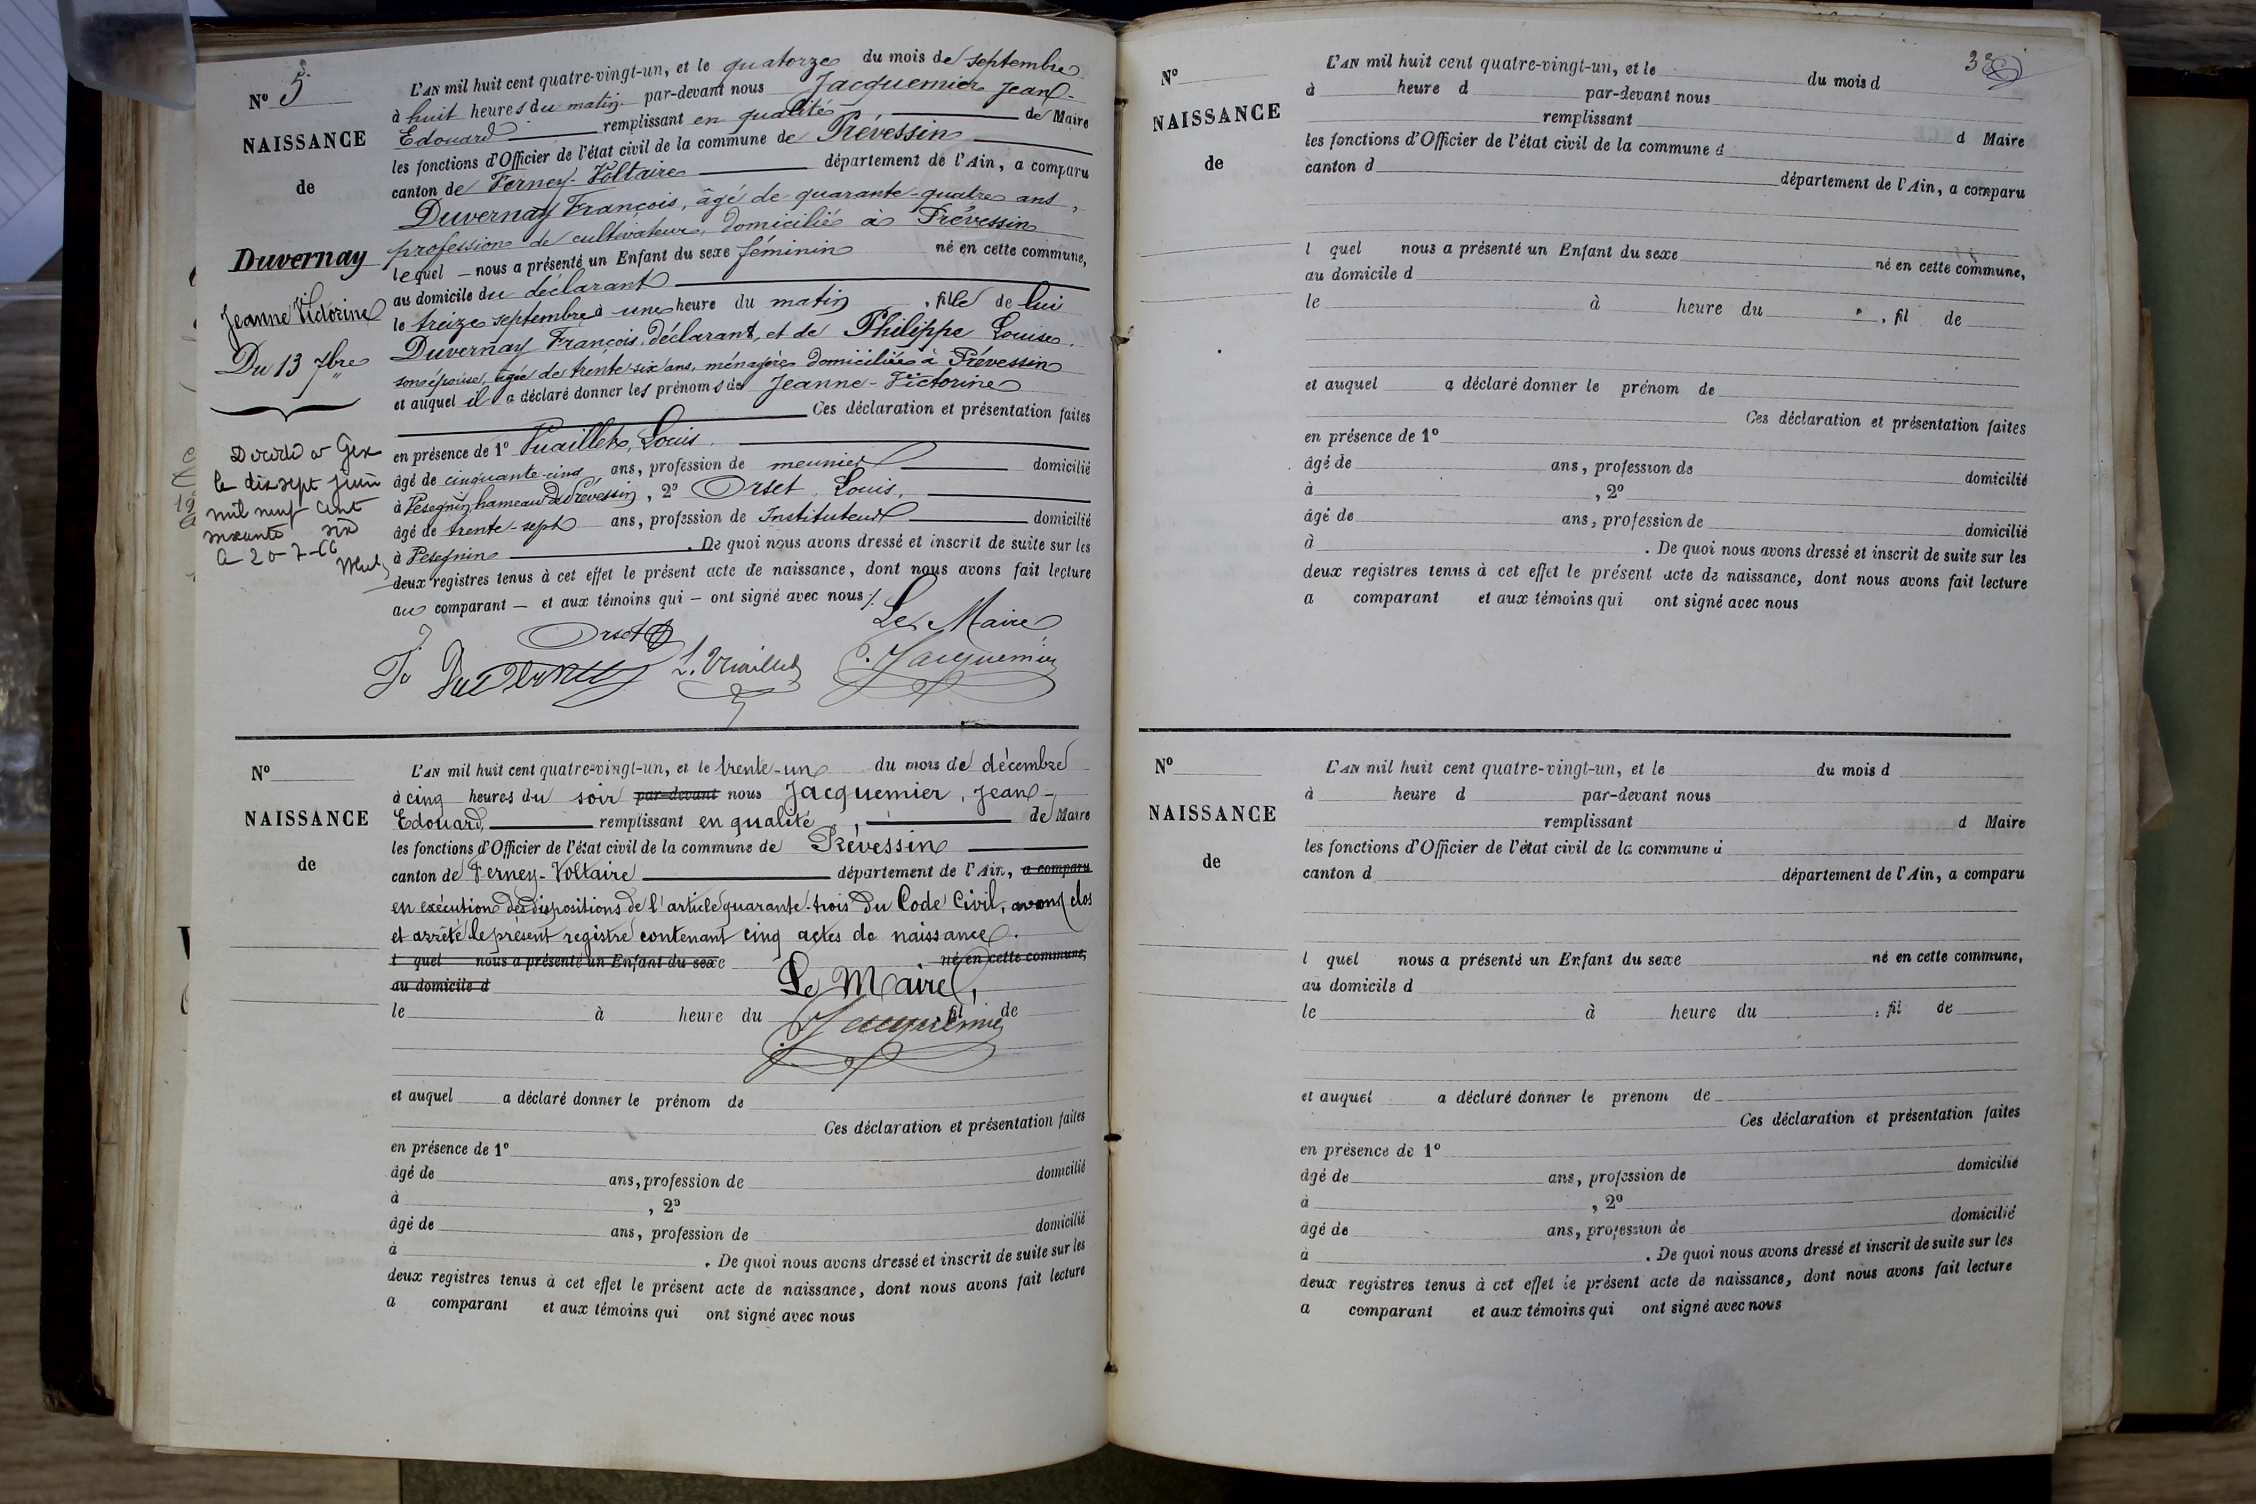 N° 5
NAISSANCE
de
Duvernay
Jeanne Victorine
Du 13 7bre
Décédé à Gex
le dix sept juin
mil neuf cent
soixante six
20-7-66
L'AN mil huit cent quatre-vingt-un, et le quatorze du mois de septembre
à huit heures du matin par-devant nous Jacquemier Jean-
Edouard remplissant en qualité de Maire
les fonctions d'Officier de l'état civil de la commune de Prévessin
canton de Ferney-Voltaire département de l'Ain, a comparu
Duvernay François, âgé de quarante-quatre ans,
profession de cultivateur, domicilié à Prévessin
lequel nous a présenté un Enfant du sexe féminin né en cette commune,
au domicile du déclarant
le treize septembre à une heure du matin, fille de lui
Duvernay François, déclarant, et de Philippe Louise,
son épouse, âgée de trente-six ans, ménagère domiciliée à Prévessin
et auquel il a déclaré donner les prénoms de Jeanne-Victorine
Ces déclaration et présentation faites
en présence de 1° Vuaillet, Louis
âgé de cinquante-cinq ans, profession de meunier domicilié
à Vésegnin hameau de Prévessin, 2° Orset Louis,
âgé de trente-sept ans, profession de Instituteur domicilié
à Vésegnin. De quoi nous avons dressé et inscrit de suite sur les
deux registres tenus à cet effet le présent acte de naissance, dont nous avons fait lecture
au comparant — et aux témoins qui — ont signé avec nous ./.
Le Maire
Orset
L. Vuaillet
Jacquemier
N°
NAISSANCE
de
L'AN mil huit cent quatre-vingt-un, et le trente-un du mois de décembre
à cinq heures du soir par-devant nous Jacquemier, Jean-
Edouard, remplissant en qualité, de Maire
les fonctions d'Officier de l'état civil de la commune de Prévessin
canton de Ferney-Voltaire département de l'Ain, a comparu
en exécution des dispositions de l'article quarante-trois du Code Civil, avons clos
et arrêté le présent registre contenant cinq actes de naissance.
l quel nous a présenté un Enfant du sexe né en cette commune,
au domicile d
Le Maire,
le à heure du fil de
Jacquemier
et auquel a déclaré donner le prénom de
Ces déclaration et présentation faites
en présence de 1°
âgé de ans, profession de domicilié
à , 2°
âgé de ans, profession de domicilié
à . De quoi nous avons dressé et inscrit de suite sur les
deux registres tenus à cet effet le présent acte de naissance, dont nous avons fait lecture
a comparant et aux témoins qui ont signé avec nous
N°
NAISSANCE
de
L'AN mil huit cent quatre-vingt-un, et le du mois d
à heure d par-devant nous
remplissant d Maire
les fonctions d'Officier de l'état civil de la commune d
canton d département de l'Ain, a comparu
l quel nous a présenté un Enfant du sexe né en cette commune,
au domicile d
le à heure du , fil de
et auquel a déclaré donner le prénom de
Ces déclaration et présentation faites
en présence de 1°
âgé de ans, profession de domicilié
à , 2°
âgé de ans, profession de domicilié
à . De quoi nous avons dressé et inscrit de suite sur les
deux registres tenus à cet effet le présent acte de naissance, dont nous avons fait lecture
a comparant et aux témoins qui ont signé avec nous
N°
NAISSANCE
de
L'AN mil huit cent quatre-vingt-un, et le du mois d
à heure d par-devant nous
remplissant d Maire
les fonctions d'Officier de l'état civil de la commune d
canton d département de l'Ain, a comparu
l quel nous a présenté un Enfant du sexe né en cette commune,
au domicile d
le à heure du , fil de
et auquel a déclaré donner le prénom de
Ces déclaration et présentation faites
en présence de 1°
âgé de ans, profession de domicilié
à , 2°
âgé de ans, profession de domicilié
à . De quoi nous avons dressé et inscrit de suite sur les
deux registres tenus à cet effet le présent acte de naissance, dont nous avons fait lecture
a comparant et aux témoins qui ont signé avec nous